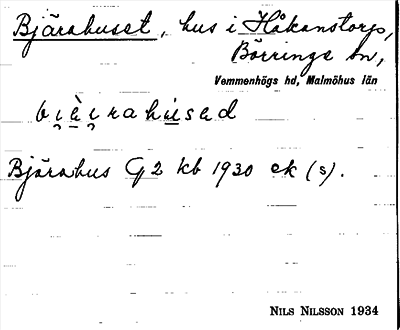 Bjärahuset, hus i Håkanstorp,
Börringe sn,
Vemmenhögs hd, Malmöhus län
Bjärahus G 2 kb 1930 ek (s).
NILS NILSSON 1934